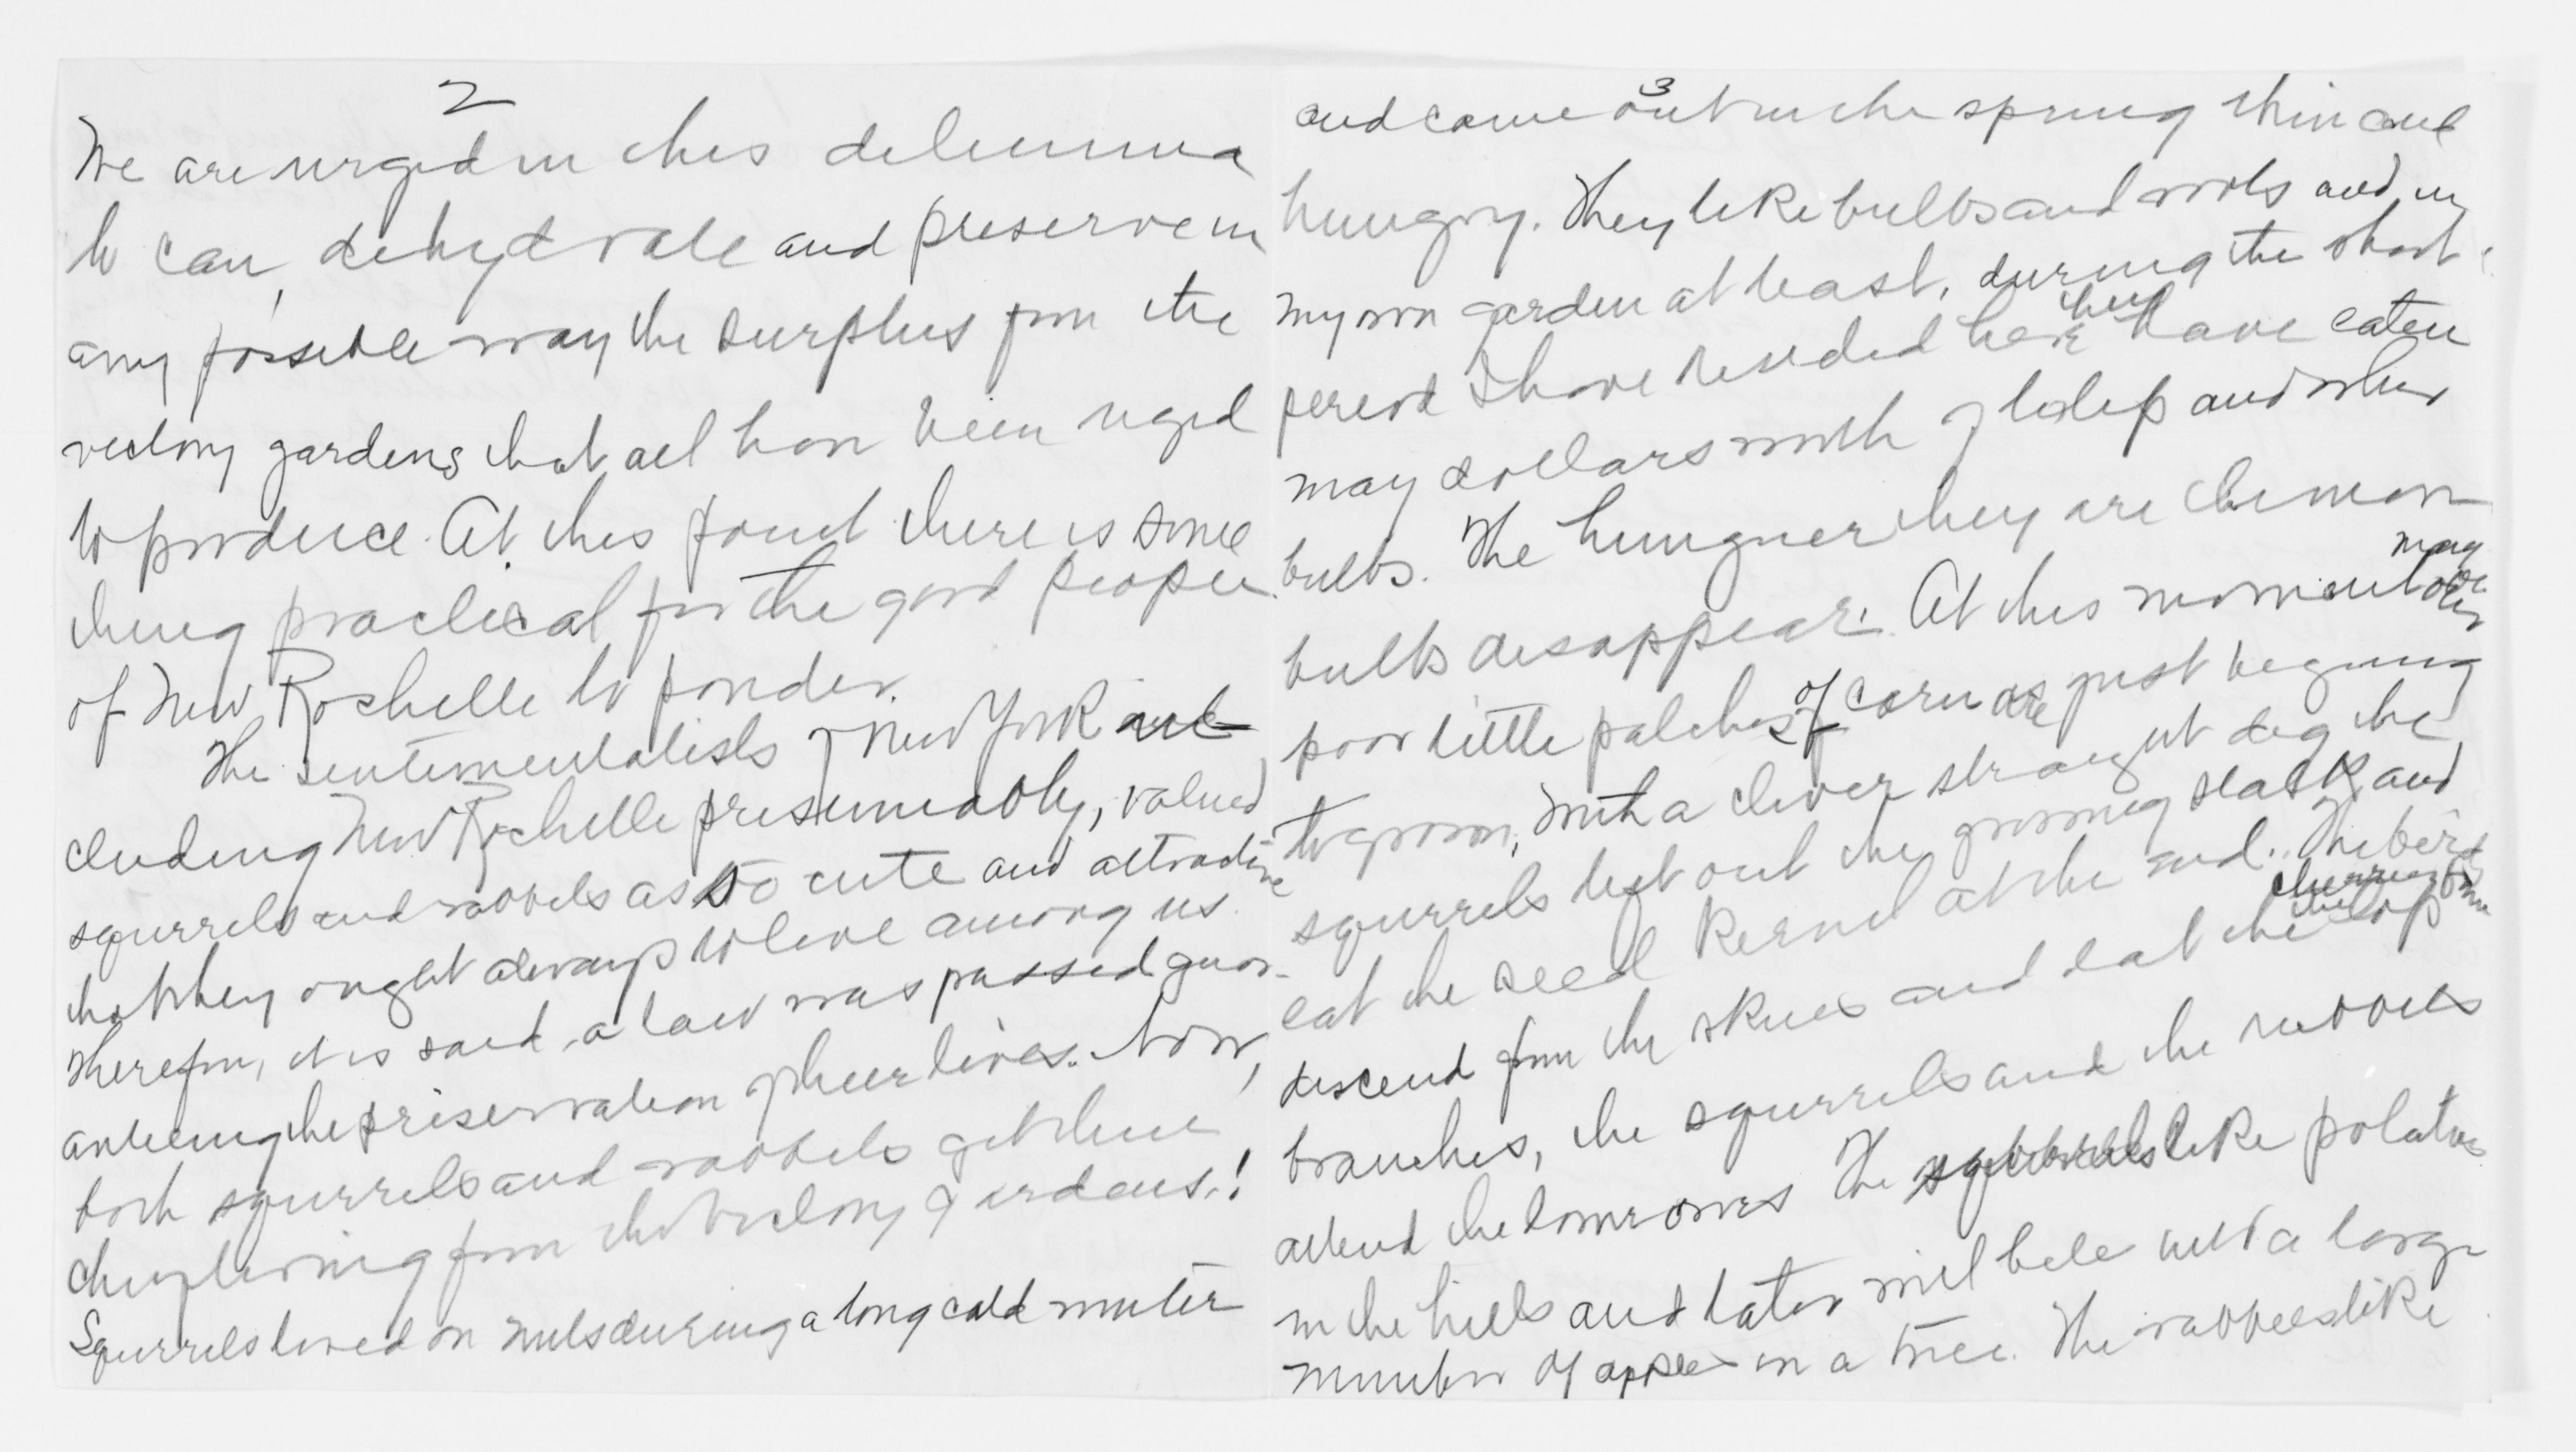 2
We are urged in this dilemma
to can, dehydrate and preserve in
any possible way the surplus from the
victory gardens that all have been urged
to produce. At this point there is some
thing practical for the good people
of New Rochelle to ponder.
The sentimentalists of New York in
cluding New Rochelle presumably, valued
squirrels and rabbits as so cute and attractive
that they ought always to live among us.
Therefore, it is said, a law was passed guar-
anteeing the preservation of their lives. Now,
both squirrels and rabbits get their
chief living from the victory gardens!
Squirrels lived on nuts during a long cold winter
3
and come out in the spring thin and
hungry. They like bulbs and roots and in
my own garden at least, during the short
period I have resided here they have eaten
many dollars worth of tulip and other
bulbs. The hungrier they are the more
bulbs disappear. At this moment many
poor little patches of corn are just begining
to grow. With a clever straight dig the
squirrels lift out the growing stalk and
eat the seed kernel at the end. The birds
descend from the skies and eat the cherries from
the top
branches, the squirrels and the rabbits
attend the lower ones The squirrels like potatoes
in the hills and later will bite into a large
number of apples on a tree. The rabbits like